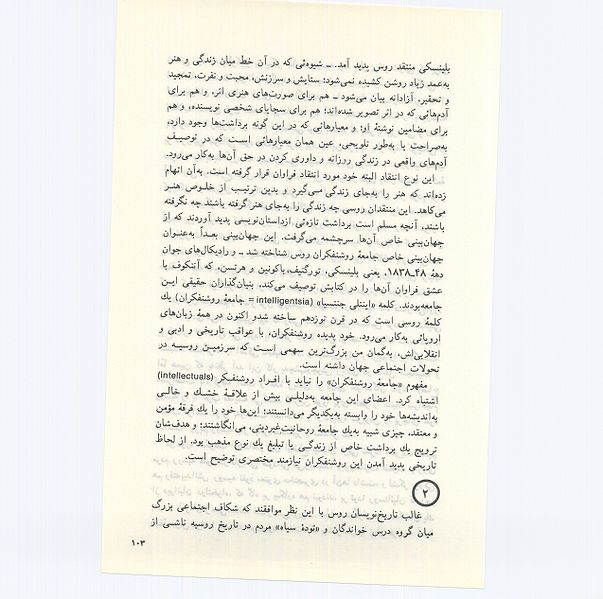 بلینسکی منتقد روس پدید آمد. ـ شیوه‌ئی که در آن خط میان زندگی و هنر
به‌عمد زیاد روشن کشیده نمی‌شود؛ ستایش و سرزنش، محبت و نفرت، تمجید
و تحقیر، آزادانه بیان می‌شود ـ هم برای صورت‌های هنری اثر، و هم برای
آدم‌هائی که در اثر تصویر شده‌اند؛ هم برای سجایای شخصی نویسنده، و هم
برای مضامین نوشتهٔ او؛ و معیارهائی که در این گونه برداشت‌ها وجود دارد،
به‌صراحت یا به‌طور تلویحی، عین همان معیارهائی است که در توصیف
آدم‌های واقعی در زندگی روزانه و داوری کردن در حق آن‌ها به‌کار می‌رود.
این نوع انتقاد البته خود مورد انتقاد فراوان قرار گرفته است. به‌آن اتهام
زده‌اند که هنر را به‌جای زندگی می‌گیرد و بدین ترتیب از خلوص هنر
می‌کاهد. این منتقدان روسی چه زندگی را به‌جای هنر گرفته باشند چه نگرفته
باشند، آنچه مسلم است برداشت تازه‌ئی ازداستان‌نویسی پدید آوردند که از
جهان‌بینی خاص آن‌ها سرچشمه می‌گرفت. این جهان‌بینی بعداً به‌عنوان
جهان‌بینی خاص جامعهٔ روشنفکران روس شناخته شد ـ و رادیکال‌های جوان
دههٔ ۴۸ـ۱۸۳۸، یعنی بلینسکی، تورگنیف، باکونین و هرتسن، که آننکوف با
عشق فراوان آن‌ها را در کتابش توصیف می‌کند، بنیان‌گذاران حقیقی ایـن
جامعه‌بودند. کلمه «اینتلی جنتسیا» (intelligentsia = جامعهٔ روشنفکران) یك
کلمهٔ روسی است که در قرن نوزدهم ساخته شدو اکنون در همهٔ زبان‌های
اروپائی به‌کار می‌رود. خود پدیده روشنفکران، با عواقب تاریخی و ادبی و
انقلابی‌اش، به‌گمان من بزرگ‌ترین سهمی است که سرزمین روسیه در
تحولات اجتماعی جهان داشته است.
مفهوم «جامعهٔ روشنفکران» را نباید با افـراد روشنفکر (intellectuals)
اشتباه کرد. اعضای این جامعه به‌دلیلی بیش از علاقهٔ خشك و خالی
به‌اندیشه‌ها خود را وابسته به‌یکدیگر می‌دانستند؛ این‌ها خود را یك فرقهٔ مؤمن
و معتقد، چیزی شبیه به‌یك جامعهٔ روحانیت‌غیردینی، می‌انگاشتند؛ و هدف‌شان
ترویج یك برداشت خاص از زندگـی یا تبلیغ یك نوع مذهب بود. از لحاظ
تاریخی پدید آمدن این روشنفکران نیازمند مختصری توضیح است.
۲
غالب تاریخ‌نویسان روس با این نظر موافقند که شکاف اجتماعی بزرگ
میان گروه درس خواندگان و «تودهٔ سیاه» مردم در تاریخ روسیه ناشـی از
۱۰۳